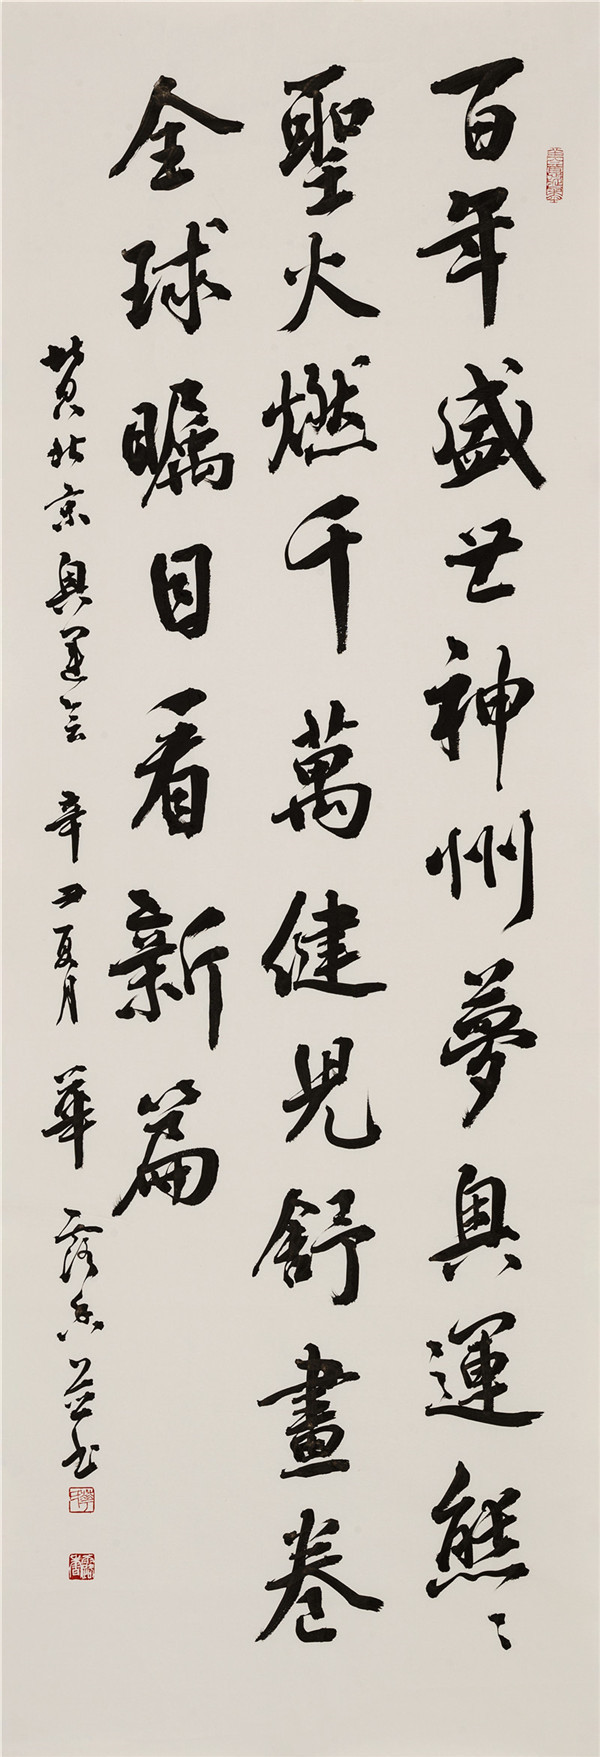 百年盛世神州夢奥運熊〻
聖火燃千萬健児舒畫卷
全球瞩目看新篇
北京奥運会 辛丑夏月 華 香並书